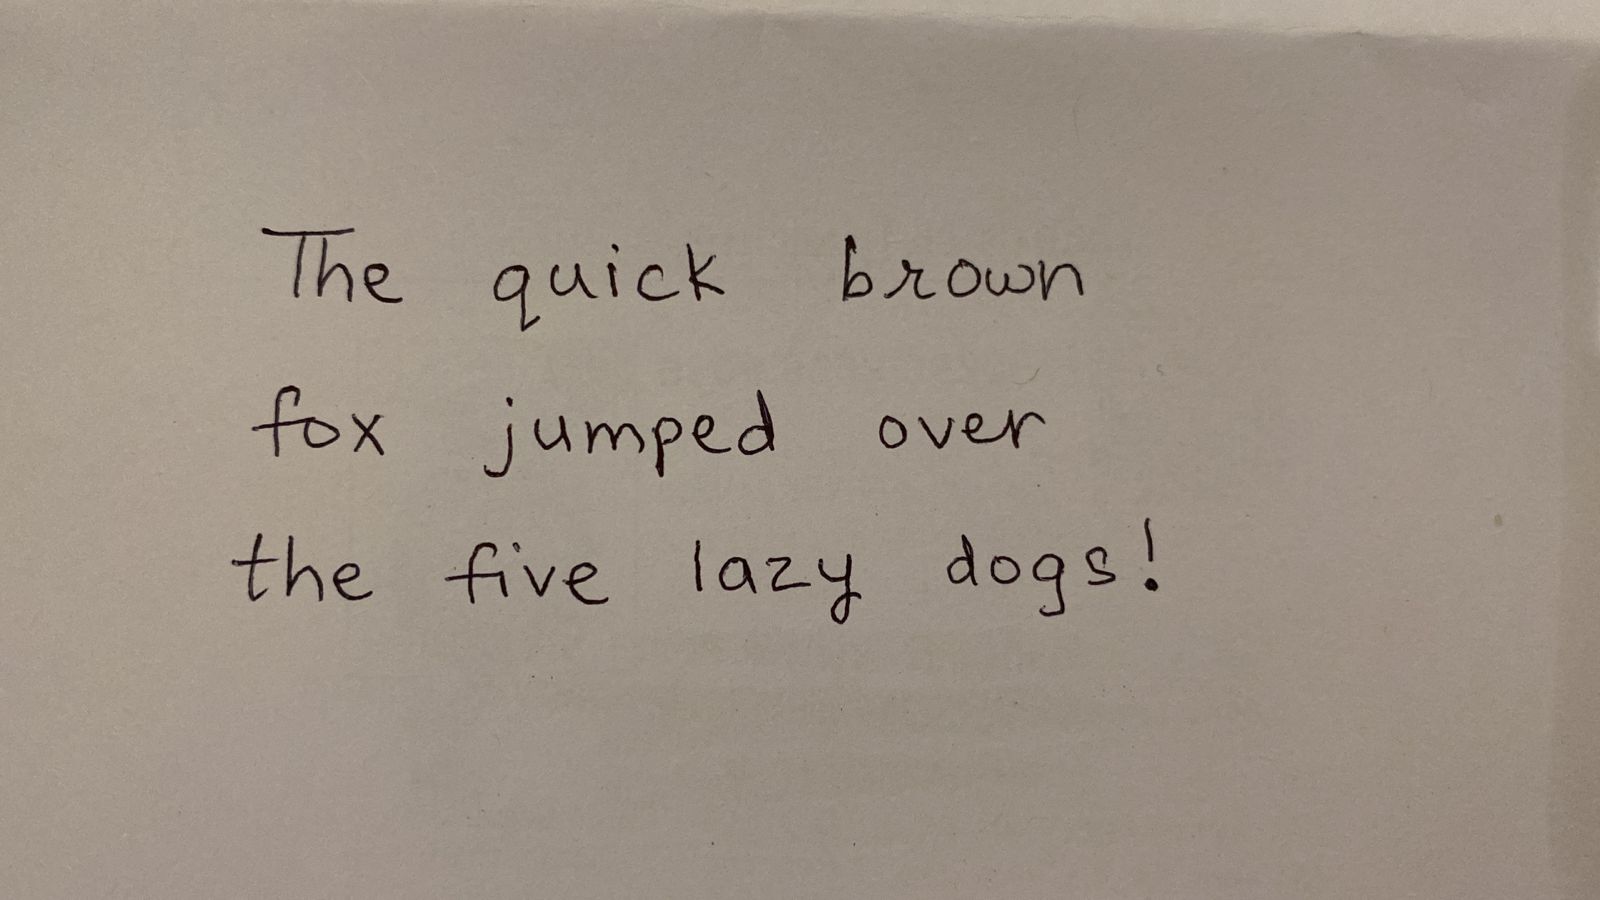 The quick brown
fox jumped over
the five lazy dogs!